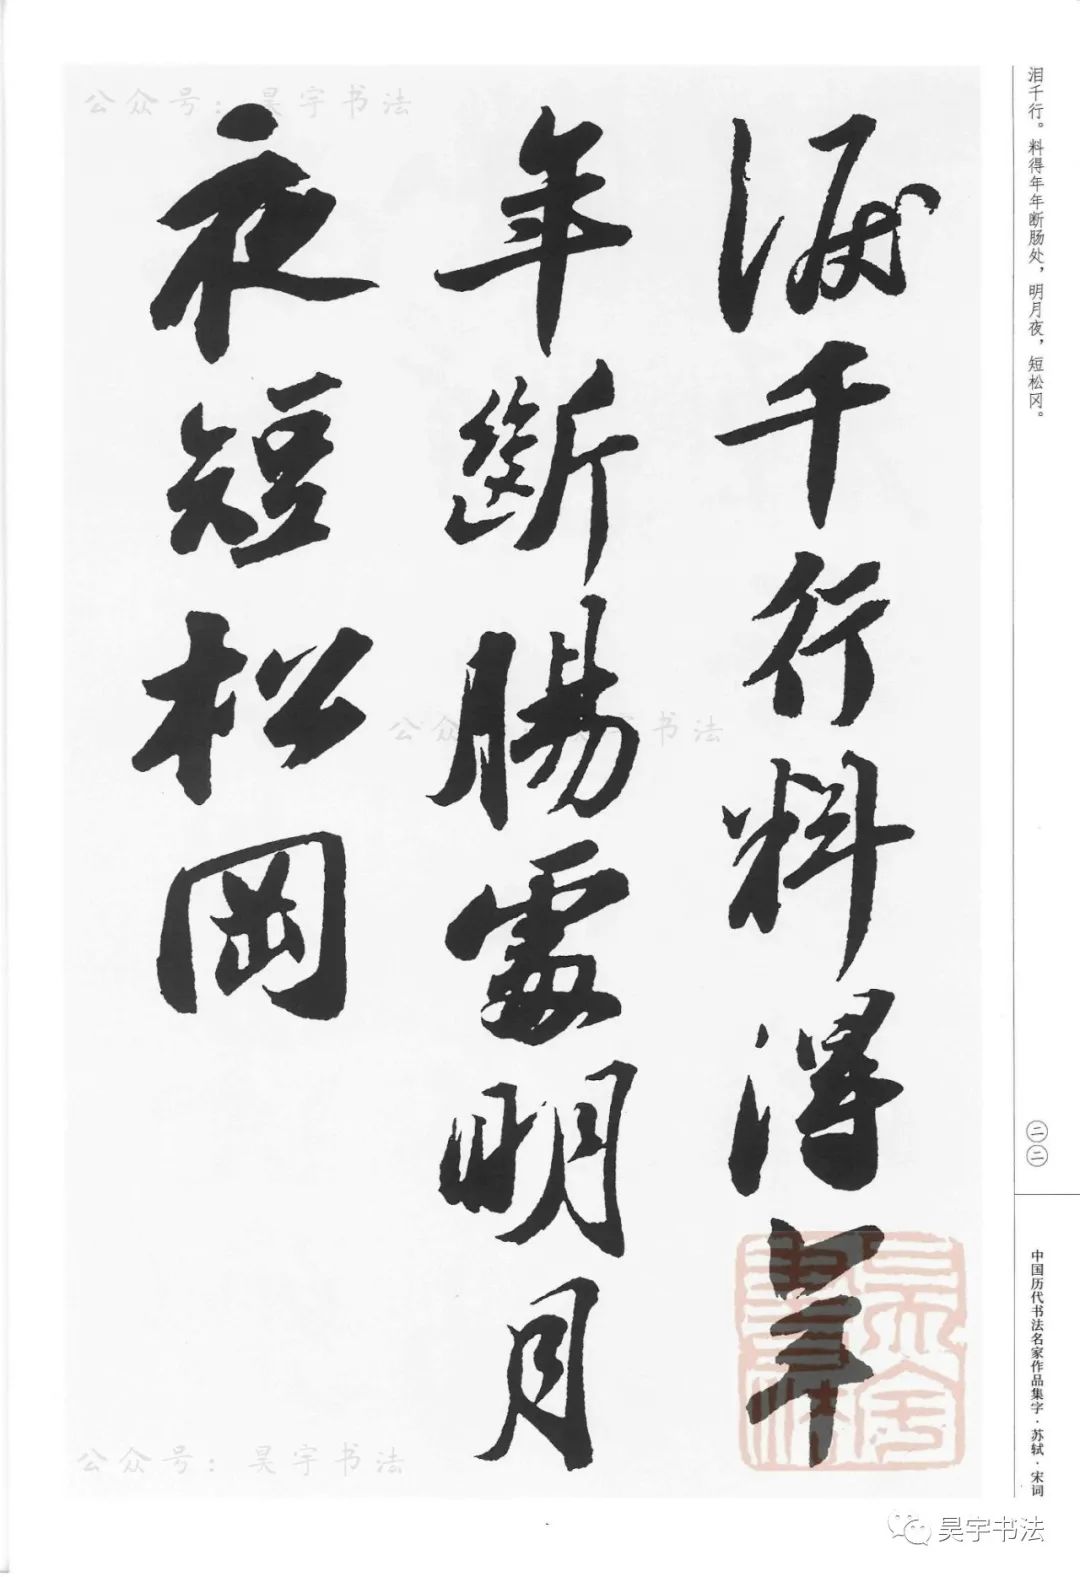 泪千行。料得年年断肠处，明月夜，短松冈。
淚千行料得年
年斷腸處明月
夜短松岡
二二
中国历代书法名家作品集字·苏轼·宋词
公众号：昊宇书法
公众号：昊宇书法
昊宇书法